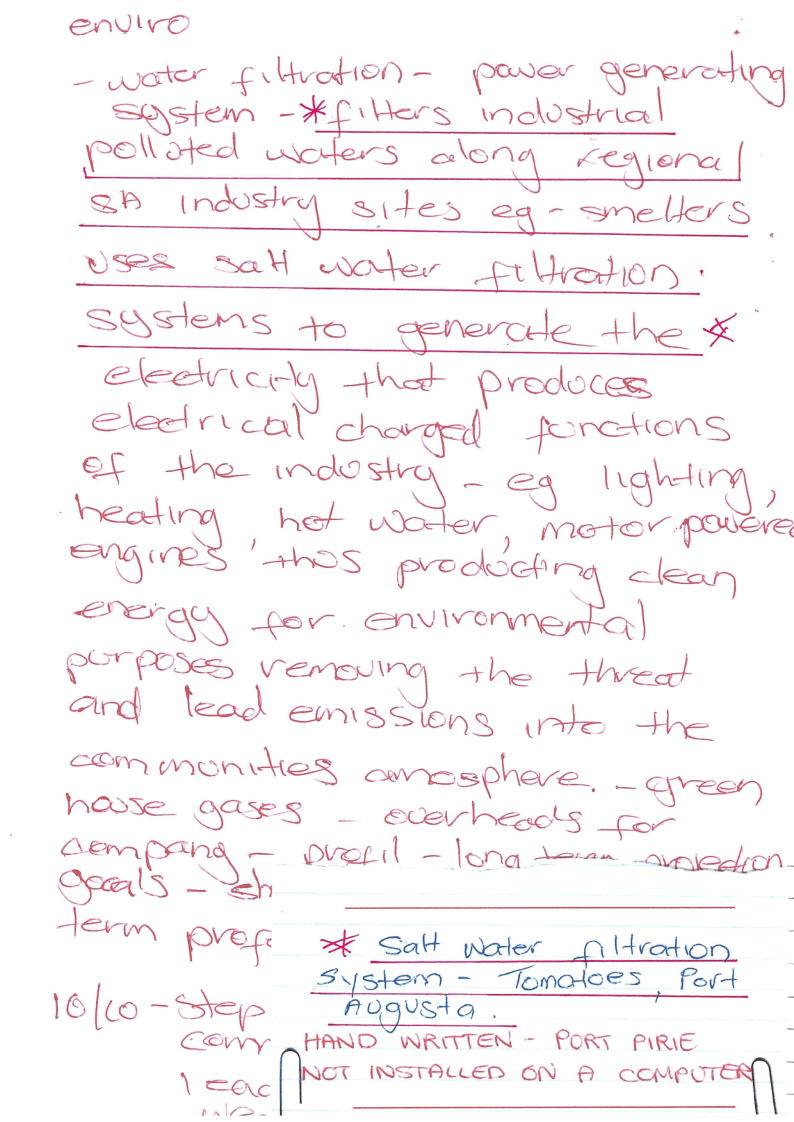 enviro
- water filtration - power generating
system - *filters industrial
polluted waters along regional
SA industry sites eg - smelters
uses salt water filtration.
systems to generate the *
electricity that produces
electrical charged functions
of the industry - eg lighting,
heating, hot water, motor powered
engines, thus producting clean
energy for environmental
purposes removing the threat
and lead emissions into the
communities amosphere. - green
house gases - overheads for
company - profil - long term projection
goals - sh
term prof
* Salt Water filtration
System - Tomatoes, Port
Augusta.
10/10 - Step
com
HAND WRITTEN - PORT PIRIE
NOT INSTALLED ON A COMPUTER